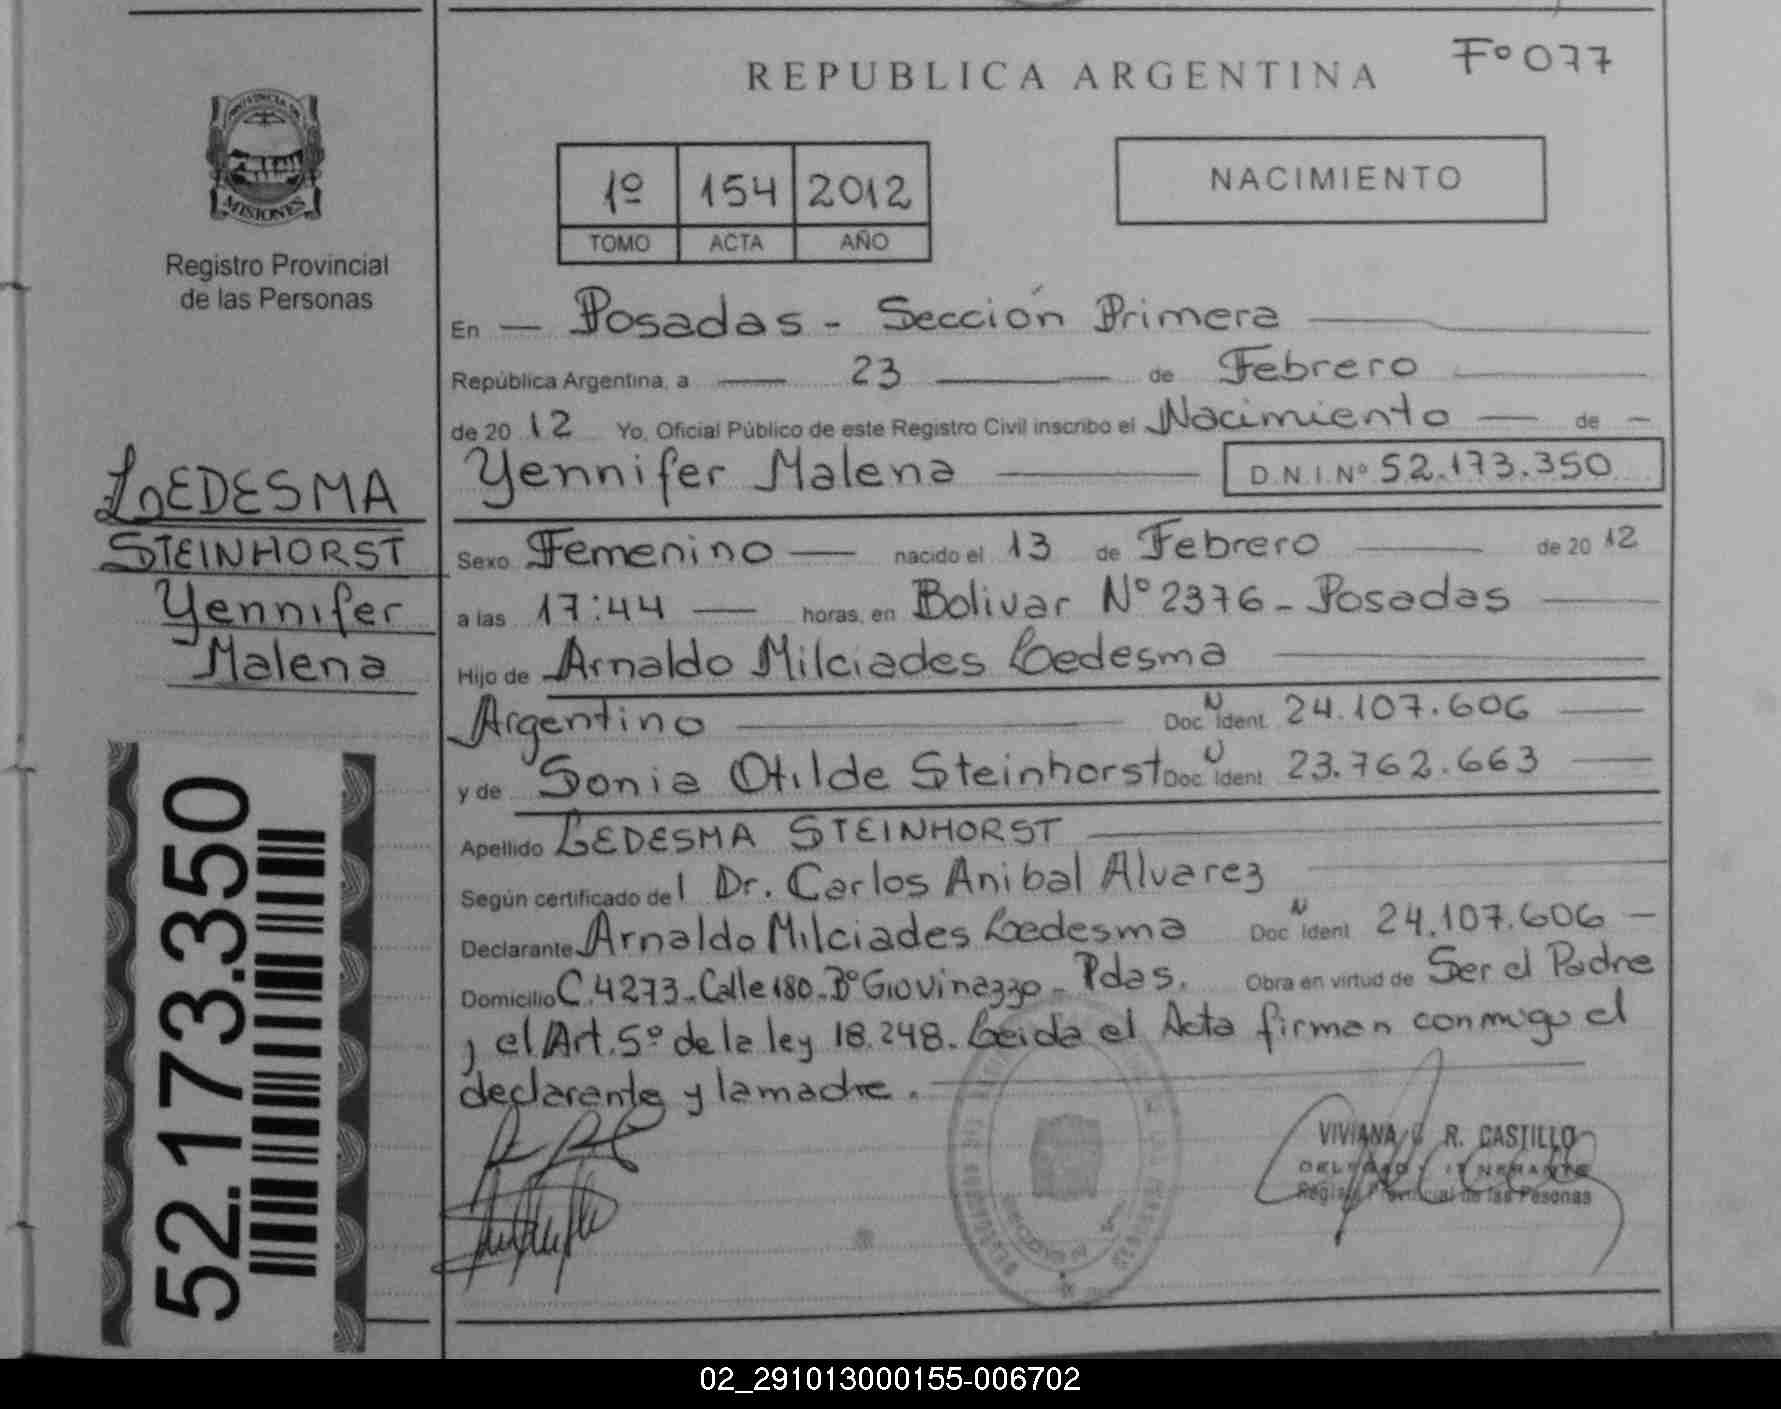 Fº 077
REPUBLICA ARGENTINA
PROVINCIA DE
MISIONES
Registro Provincial
de las Personas
1º 154 2012
TOMO ACTA AÑO
NACIMIENTO
En — Posadas - Sección Primera —
República Argentina, a — 23 — de Febrero —
de 20 12 Yo, Oficial Público de este Registro Civil inscribo el Nacimiento — de —
Yennifer Malena — D.N.I. Nº 52.173.350
LEDESMA
STEINHORST
Yennifer
Malena
Sexo Femenino — nacido el 13 de Febrero — de 20 12
a las 17:44 — horas, en Bolivar Nº 2376 - Posadas —
Hijo de Arnaldo Milciades Ledesma —
Argentino — Doc. N Ident. 24.107.606 —
y de Sonia Otilde Steinhorst Doc. Ident. 23.762.663 —
Apellido LEDESMA STEINHORST —
Según certificado del Dr. Carlos Anibal Alvarez —
Declarante Arnaldo Milciades Ledesma Doc. N Ident. 24.107.606 —
Domicilio C. 4273 - Calle 180 - Bº Giovinazzo - Pdas. Obra en virtud de Ser el Padre
y el Art. 5º de la ley 18.248. Leida el Acta firman conmigo el
declarante y la madre. —
VIVIANA R. CASTILLO
Registro Provincial de las Pesonas
52.173.350
02_291013000155-006702